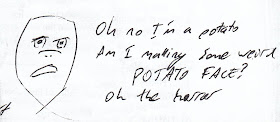 Oh no I'm a potato
Am I making some weird
POTATO FACE?
Oh the horror